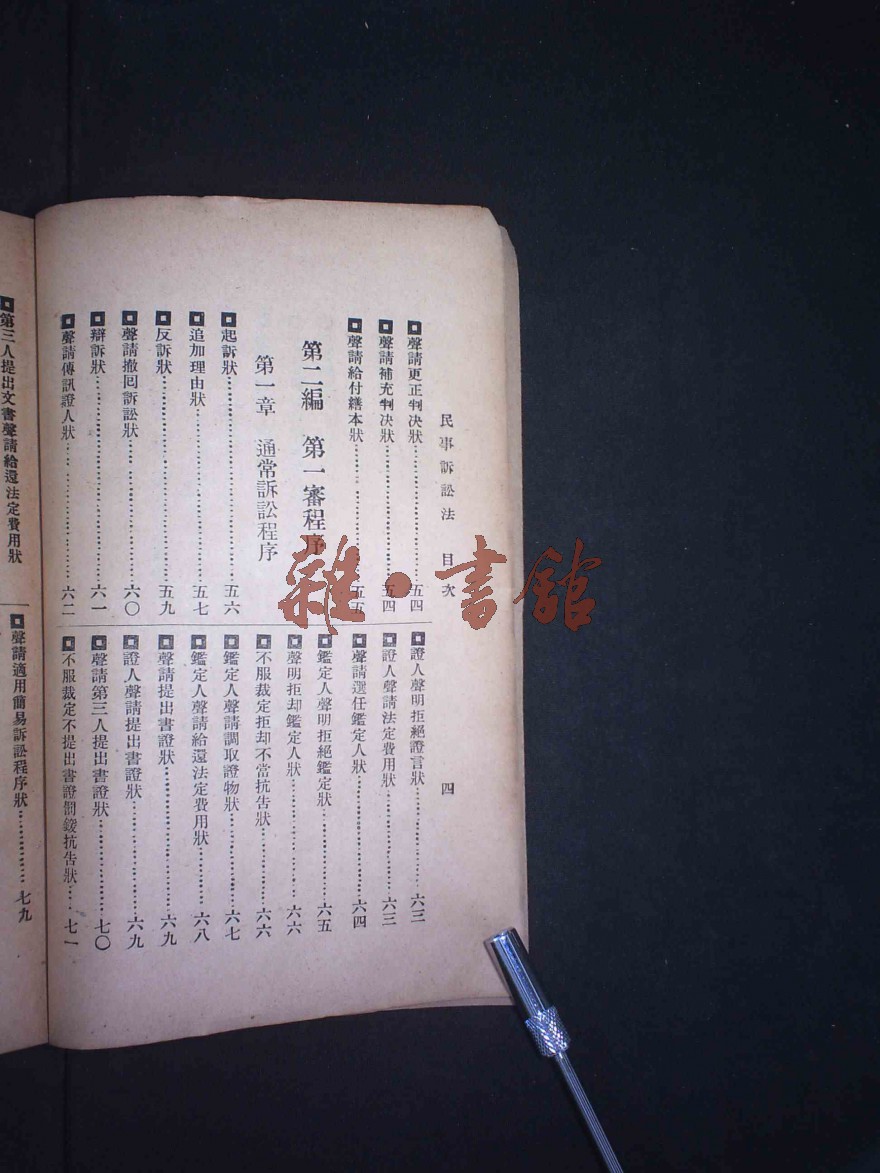 民事訴訟法 目次 四
聲請更正判決狀……五四
聲請補充判決狀……五四
聲請給付繕本狀……五五
第二編 第一審程序
第一章 通常訴訟程序
起訴狀……五六
追加理由狀……五七
反訴狀……五九
聲請撤回訴訟狀……六〇
辯訴狀……六一
聲請傳訊證人狀……六二
證人聲明拒絕證言狀……六三
證人聲請法定費用狀……六三
聲請選任鑑定人狀……六四
鑑定人聲明拒絕鑑定狀……六五
聲明拒却鑑定人狀……六六
不服裁定拒却不當抗告狀……六六
鑑定人聲請調取證物狀……六七
鑑定人聲請給還法定費用狀……六八
聲請提出書證狀……六九
證人聲請提出書證狀……六九
聲請第三人提出書證狀……七〇
不服裁定不提出書證罰鍰抗告狀……七一
第三人提出文書聲請給還法定費用狀
聲請適用簡易訴訟程序狀……七九
雜·書館